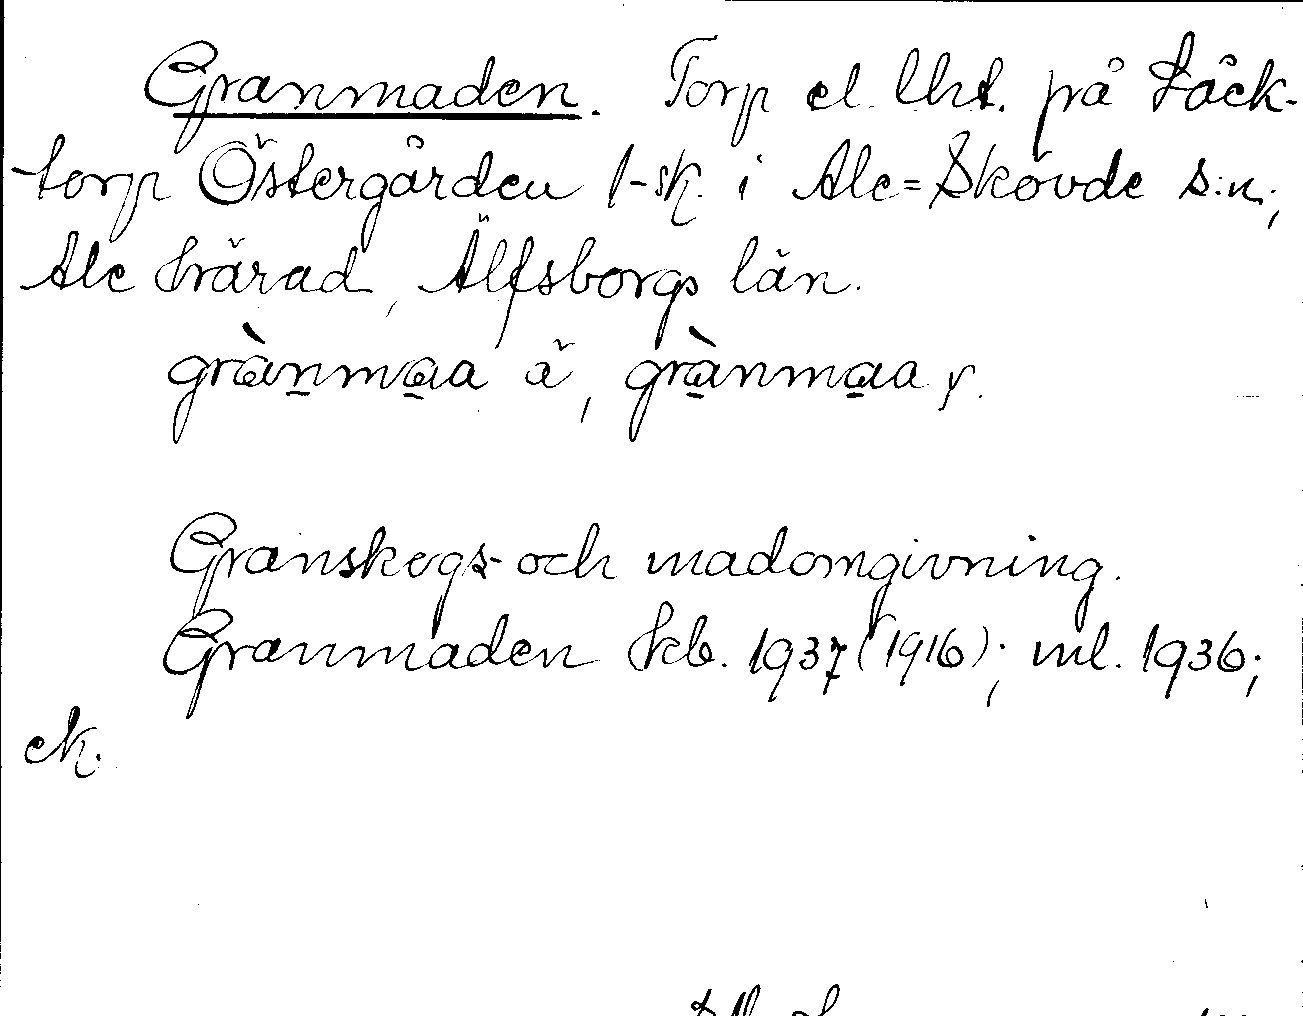 Granmaden. Torp el. lht. på Läck-
torp Östergården 1-sk. i Ale=Skövde s:n,
Ale härad, Älfsborgs län.
grànmaa ä, grànmaa r.
Granskogs- och madomgivning.
Granmaden kb. 1937 (1916); ml. 1936;
ek.